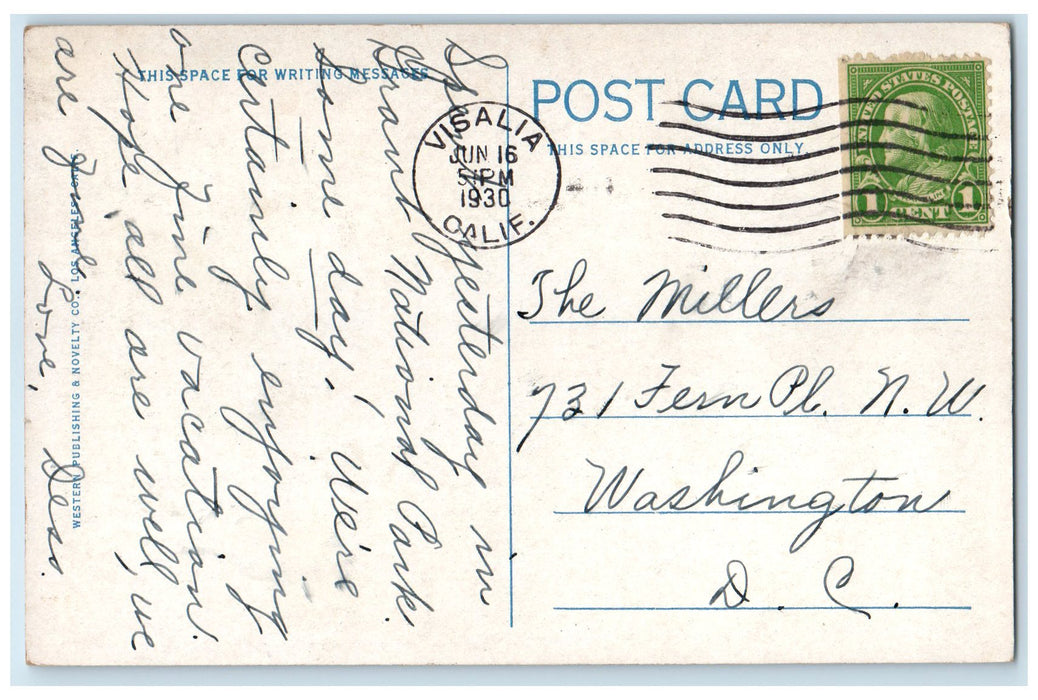 THIS SPACE FOR WRITING MESSAGES
Spent yesterday in
Grant National Park.
Some day! We're
certainly enjoying
one fine vacation.
Hope all are well, we
are fine. Love, Dess.
WESTERN PUBLISHING & NOVELTY CO., LOS ANGELES, CAL.
POST CARD
THIS SPACE FOR ADDRESS ONLY
VISALIA
JUN 16
5 PM
1930
CALIF.
UNITED STATES POSTAGE
1 CENT 1
The Millers
731 Fern Pl. N. W.
Washington
D. C.